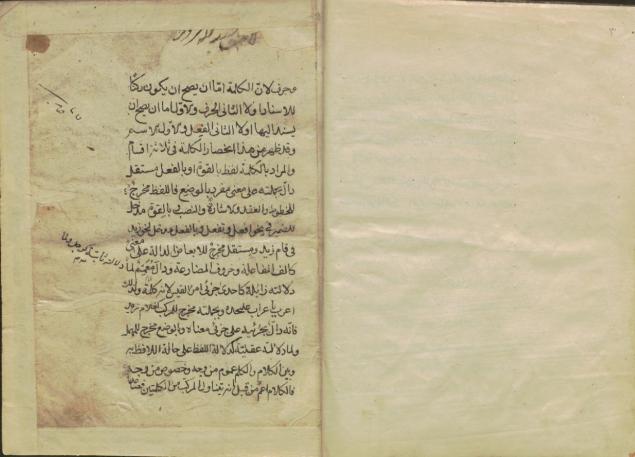 وحرف لان الكلمة اما ان يصح ان يكون ركنا
للاسناد اولا الثانى الحرف والاول اما ان يصح ان
يسند اليها اولا الثانى الفعل والاول الاسم
وقد ظهر من هذا انحصار الكلمة فى ثلاثة اقسام
والمراد بالكلمة لفظ بالقوة او بالفعل مستقل
دال بجملته على معنى مفرد بالوضع فاللفظ مخرج
للخطوط والعقد والاشارة والنصب وبالقوة مدخل
للضمير فى نحو افعل وتفعل وبالفعل مدخل لنحو زيد
فى قام زيد ومستقل مخرج للابعاض الدالة على معنى
كالف المفاعلة وحروف المضارعة ودال معمم لما
دلالته ثابتة كرجل وما
دلالته زايلة كاحد جزئى امرئ القيس لانه كلمة ولذلك
اعرب باعراب على حدة وبجملته مخرج للمركب كغلام زيد
فانه دال بجزئيه على جزئى معناه وبالوضع مخرج للمهمل
ولما دلالته عقلية كدلالة اللفظ على حالة اللافظ به
وبين الكلام والكلم عموم من وجه وخصوص من وجه
فالكلام اعم من قبل انه يتناول المركب من الكلمتين فصاعدا